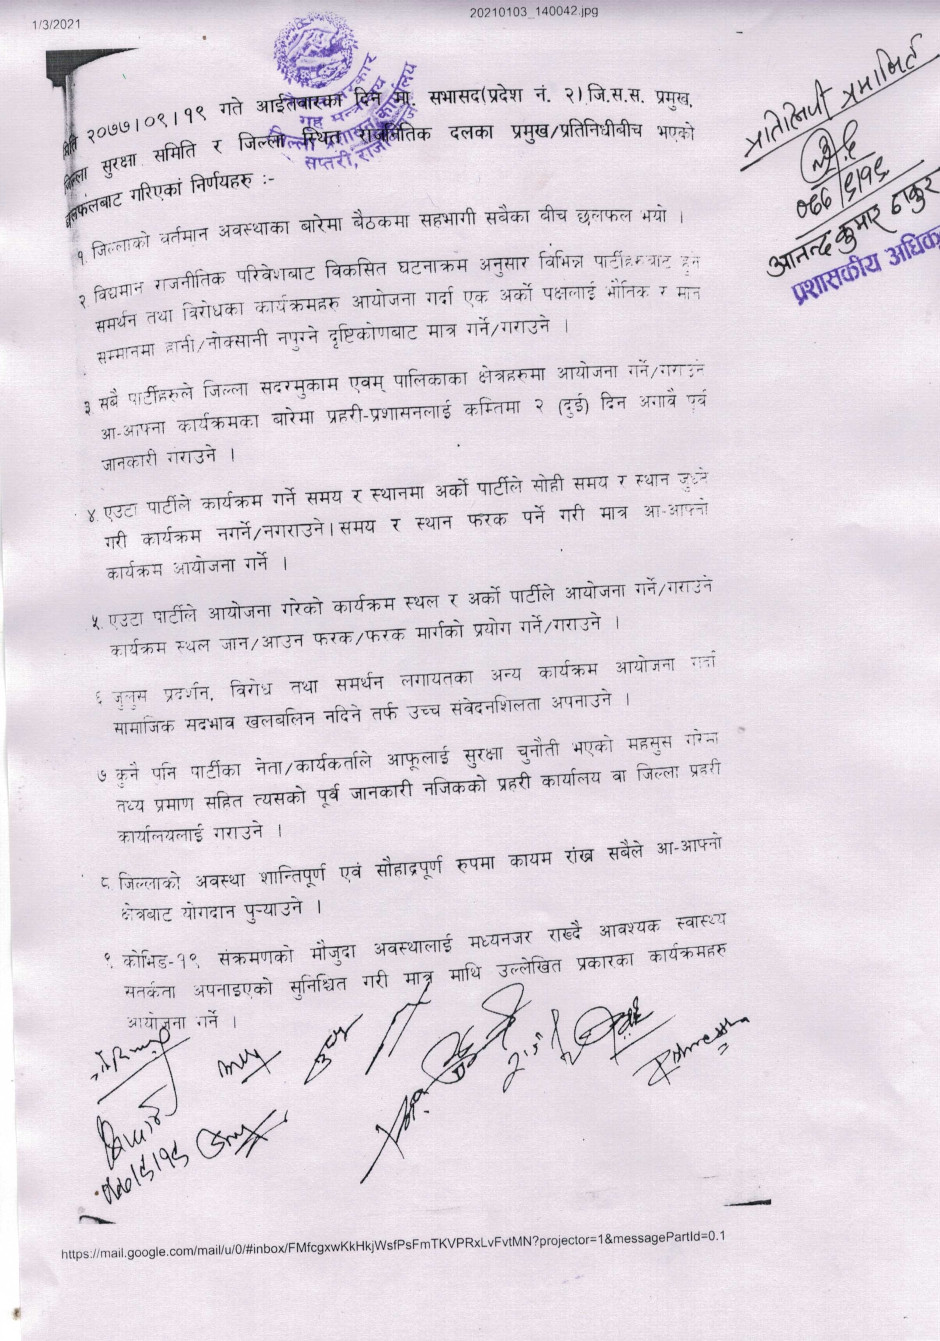 1/3/2021
20210103_140042.jpg
२०७७।०९।१९ गते आईतबारका दिन मा. सभासद(प्रदेश नं. २)जि.स.स. प्रमुख,
जिल्ला सुरक्षा समिति र जिल्ला स्थित राजनितिक दलका प्रमुख/प्रतिनिधीबीच भएको
छलफलबाट गरिएका निर्णयहरु :-
गृह मन्त्रालय
जिल्ला प्रशासन कार्यालय
सप्तरी,
प्रतिलिपी प्रमाणित
आनन्द कुमार ठाकुर
प्रशासकीय अधिकृ
१. जिल्लाको वर्तमान अवस्थाका बारेमा बैठकमा सहभागी सबैका बीच छलफल भयो ।
२. विद्यमान राजनीतिक परिवेशबाट विकसित घटनाक्रम अनुसार विभिन्न पार्टीहरुबाट हुने
समर्थन तथा विरोधका कार्यक्रमहरु आयोजना गर्दा एक अर्को पक्षलाई भौतिक र मान
सम्मानमा हानी/नोक्सानी नपुग्ने दृष्टिकोणबाट मात्र गर्ने/गराउने ।
३. सबै पार्टीहरुले जिल्ला सदरमुकाम एवम् पालिकाका क्षेत्रहरुमा आयोजना गर्ने/गराउने
आ-आफ्ना कार्यक्रमका बारेमा प्रहरी-प्रशासनलाई कम्तिमा २ (दुई) दिन अगावै पूर्व
जानकारी गराउने ।
४. एउटा पार्टीले कार्यक्रम गर्ने समय र स्थानमा अर्को पार्टीले सोही समय र स्थान जुध्ने
गरी कार्यक्रम नगर्ने/नगराउने। समय र स्थान फरक पर्ने गरी मात्र आ-आफ्नो
कार्यक्रम आयोजना गर्ने ।
५. एउटा पार्टीले आयोजना गरेको कार्यक्रम स्थल र अर्को पार्टीले आयोजना गर्ने/गराउने
कार्यक्रम स्थल जान/आउन फरक/फरक मार्गको प्रयोग गर्ने/गराउने ।
६. जुलुस प्रदर्शन, विरोध तथा समर्थन लगायतका अन्य कार्यक्रम आयोजना गर्दा
सामाजिक सदभाव खलबलिन नदिने तर्फ उच्च संवेदनशिलता अपनाउने ।
७. कुनै पनि पार्टीका नेता/कार्यकर्ताले आफूलाई सुरक्षा चुनौती भएको महसुस गरेमा
तथ्य प्रमाण सहित त्यसको पूर्व जानकारी नजिकको प्रहरी कार्यालय वा जिल्ला प्रहरी
कार्यालयलाई गराउने ।
८. जिल्लाको अवस्था शान्तिपूर्ण एवं सौहाद्रपूर्ण रुपमा कायम राख्न सबैले आ-आफ्नो
क्षेत्रबाट योगदान पुऱ्याउने ।
९. कोभिड-१९ संक्रमणको मौजुदा अवस्थालाई मध्यनजर राख्दै आवश्यक स्वास्थ्य
सतर्कता अपनाइएको सुनिश्चित गरी मात्र माथि उल्लेखित प्रकारका कार्यक्रमहरु
आयोजना गर्ने ।
https://mail.google.com/mail/u/0/#inbox/FMfcgxwKkHkjWsfPsFmTKVPRxLvFvtMN?projector=1&messagePartId=0.1